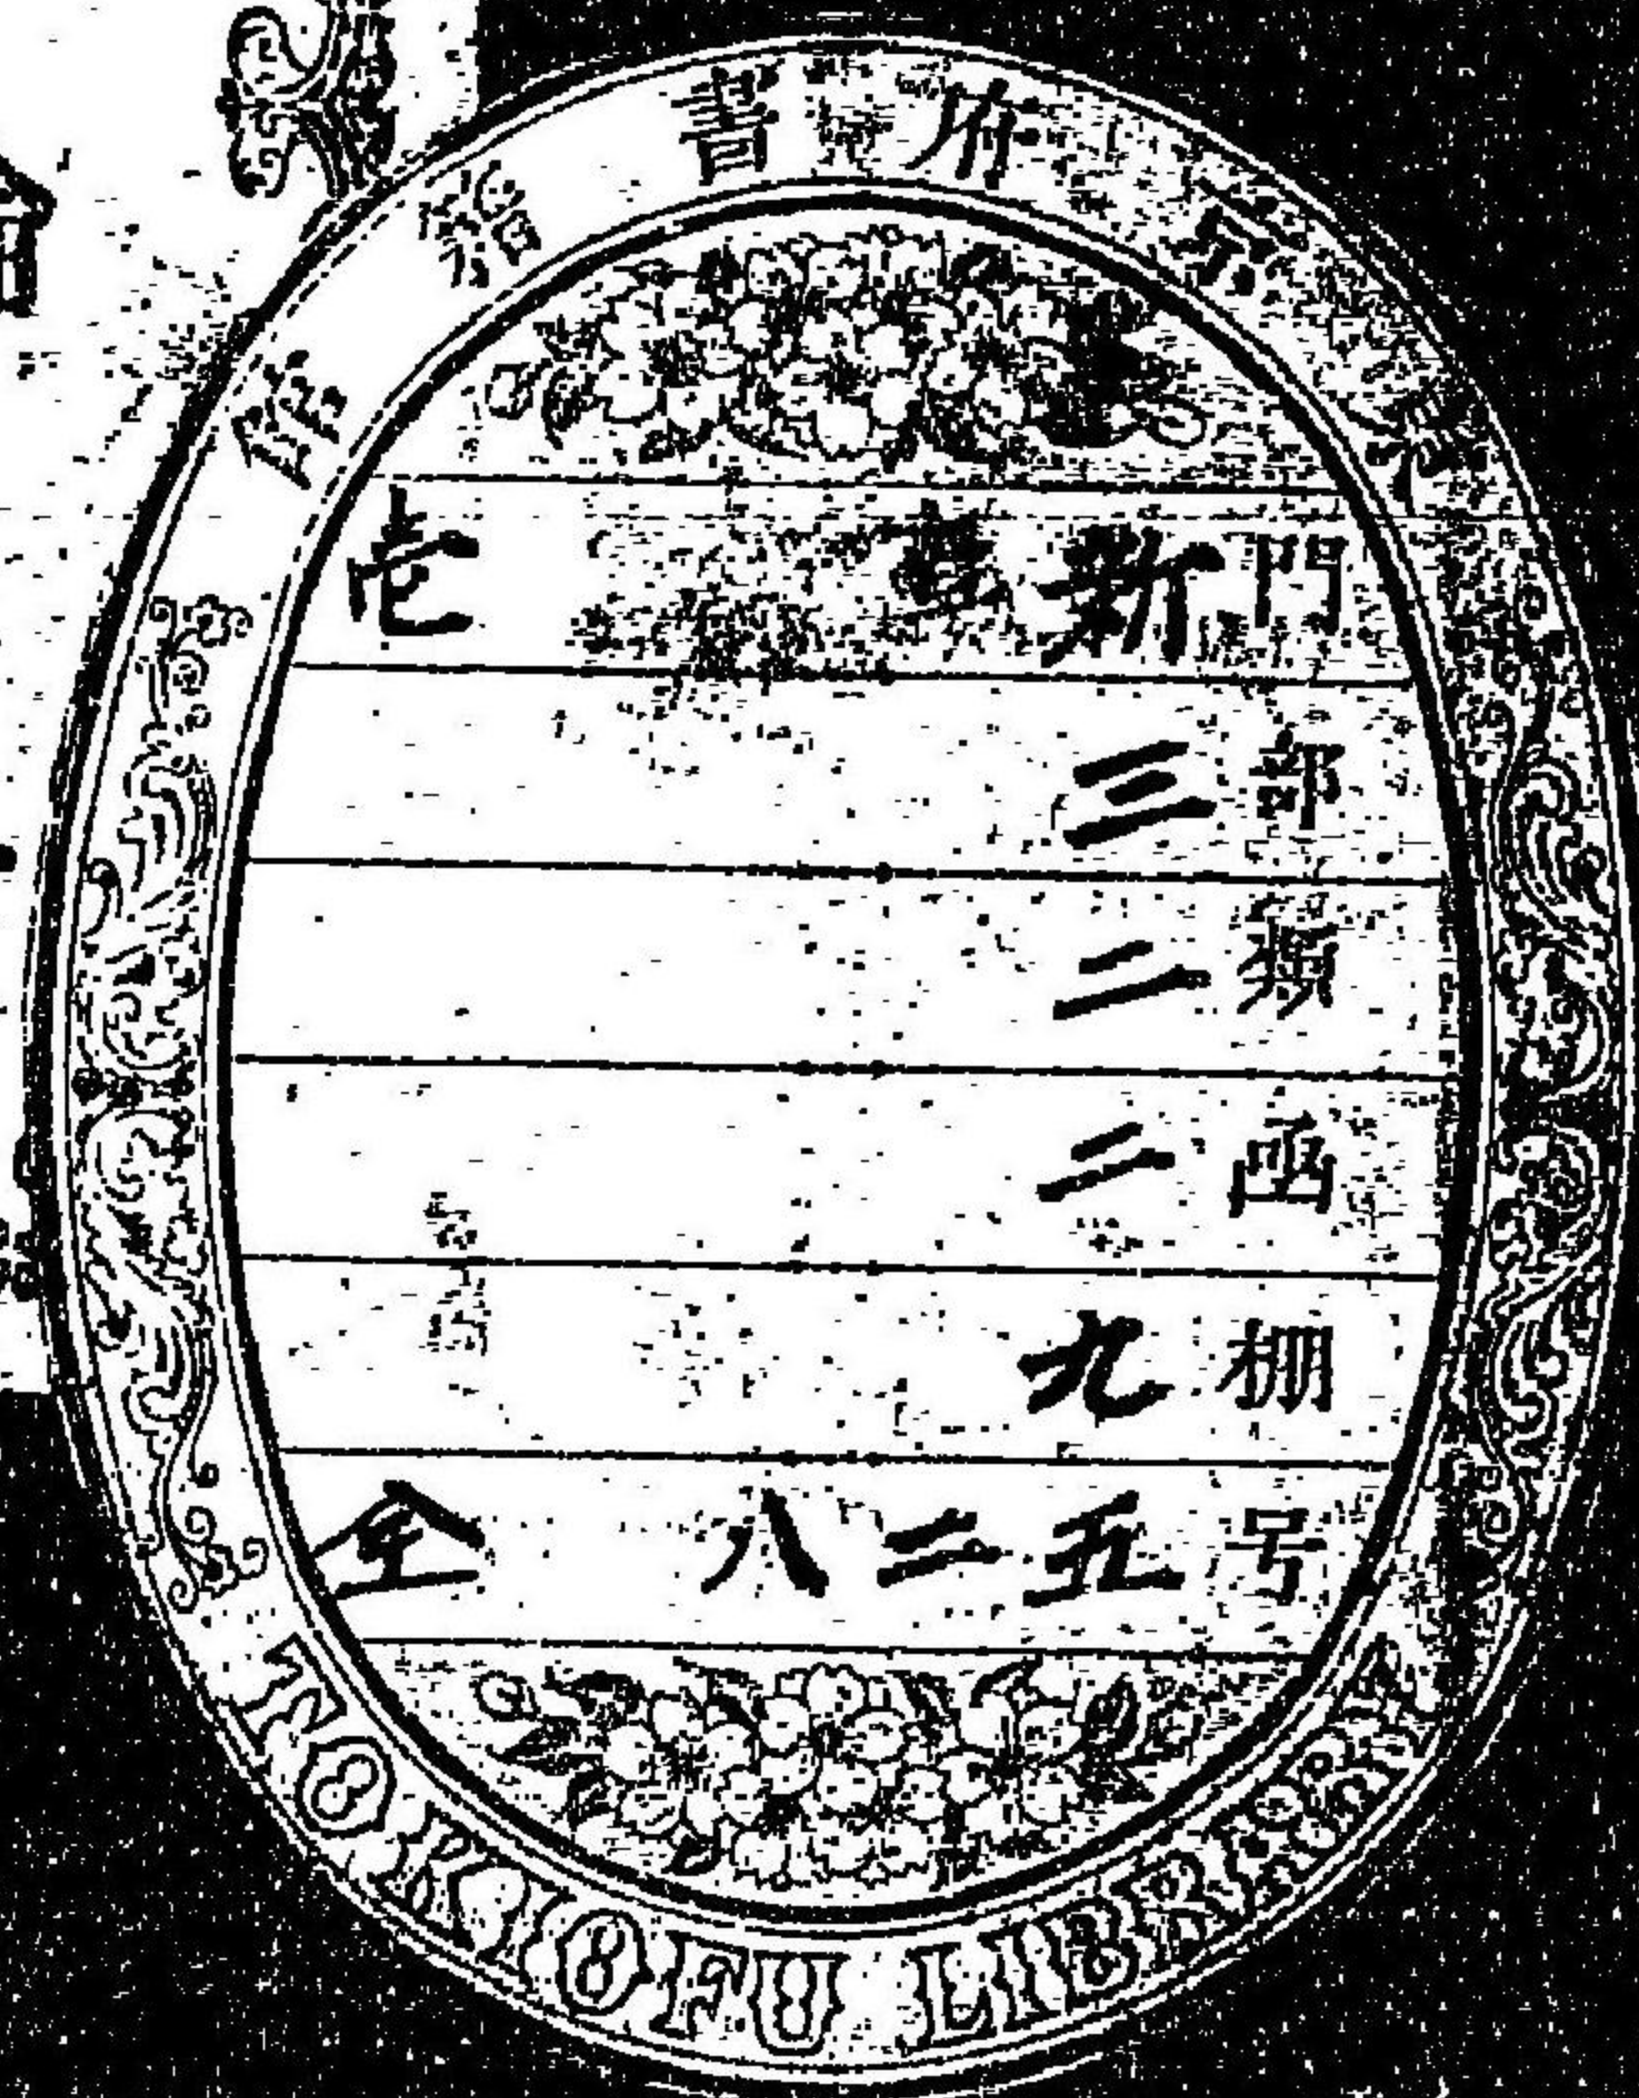 東京府書籍館
門 新 壱
部 三
類 二
函 二
棚 九
号 五二八 全
TOKIO FU LIBRARY